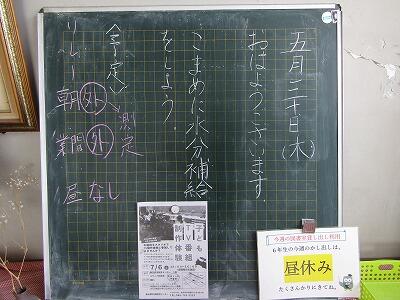 五月二十日(木)
おはようございます
こまめに水分補給
をしよう。
〈予定〉
リレー
朝 外 測定
業間 外
昼 なし
子ども
TV番組
制作体験
7/6
今週の図書室貸し出し利用
6年生の今週のかし出しは、
昼休み
たくさんかりにきてね。